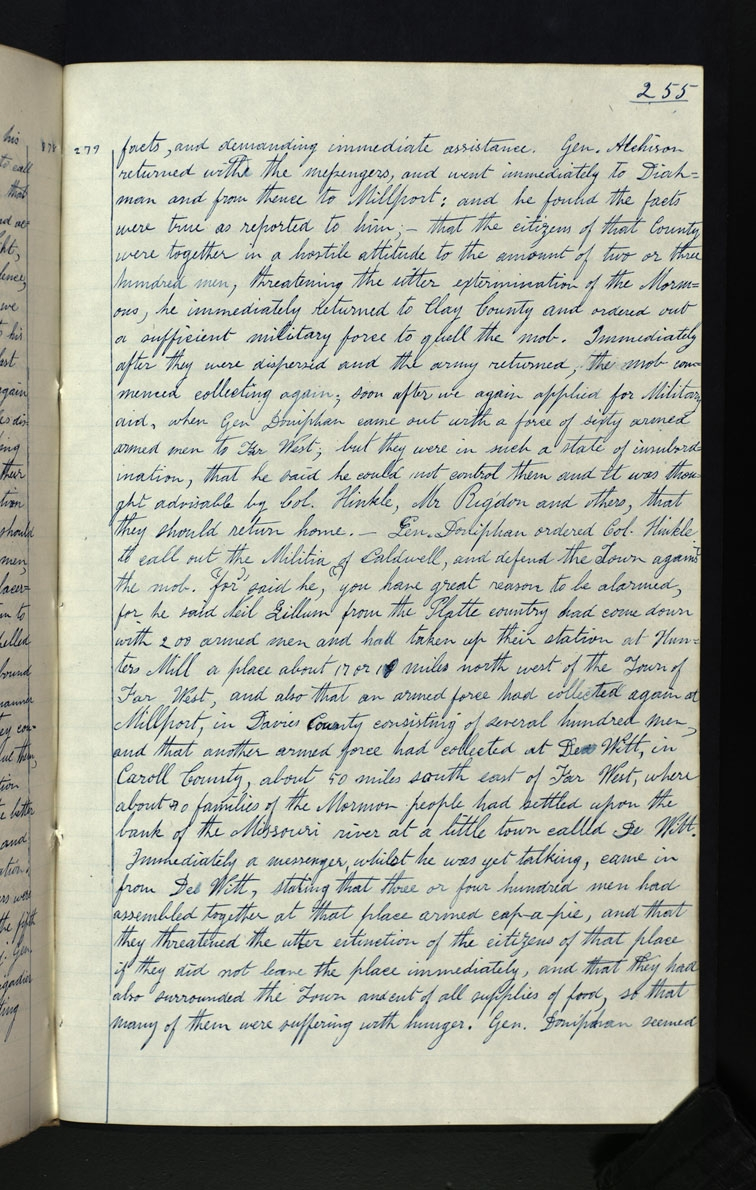 255
277
facts, and demanding immediate assistance. Gen. Atchison
returned with the messengers, and went immediately to Diah=
man and from thence to Millport; and he found the facts
were true as reported to him; – that the citizens of that County
were together in a hostile attitude to the amount of two or three
hundred men, threatening the utter extermination of the Morm=
ons, he immediately returned to Clay County and ordered out
a sufficient military force to quell the mob. Immediately
after they were dispersed and the army returned, the mob com=
menced collecting again; soon after we again applied for Military
aid, when Gen Doniphan came out with a force of sixty armed
armed men to Far West; but they were in such a state of insubord
ination, that he said he could not control them and it was thou=
ght advisable by Col. Hinkle, Mr Rigdon and others, that
they should return home. – Gen. Doniphan ordered Col. Hinkle
to call out the Militia of Caldwell, and defend the Town against
the mob. "for" said he, "you have great reason to be alarmed,
for he said Neil Gillum from the Platte country had come down
with 200 armed men and had taken up their station at Hun=
ters Mill a place about 17 or 18 miles north west of the Town of
Far West, and also that an armed force had collected again at
Millport, in Davies County consisting of several hundred men,
and that another armed force had collected at De Witt, in
Caroll County, about 50 miles south east of Far West, where
about 70 families of the Mormon people had settled upon the
bank of the Missouri river at a little town called De Witt.
Immediately a messenger, whilst he was yet talking, came in
from De Witt, stating that three or four hundred men had
assembled together at that place armed cap-a-pie, and that
they threatened the utter extinction of the citizens of that place
if they did not leave the place immediately, and that they had
also surrounded the Town and cut of all supplies of food, so that
many of them were suffering with hunger. Gen. Doniphan seemed